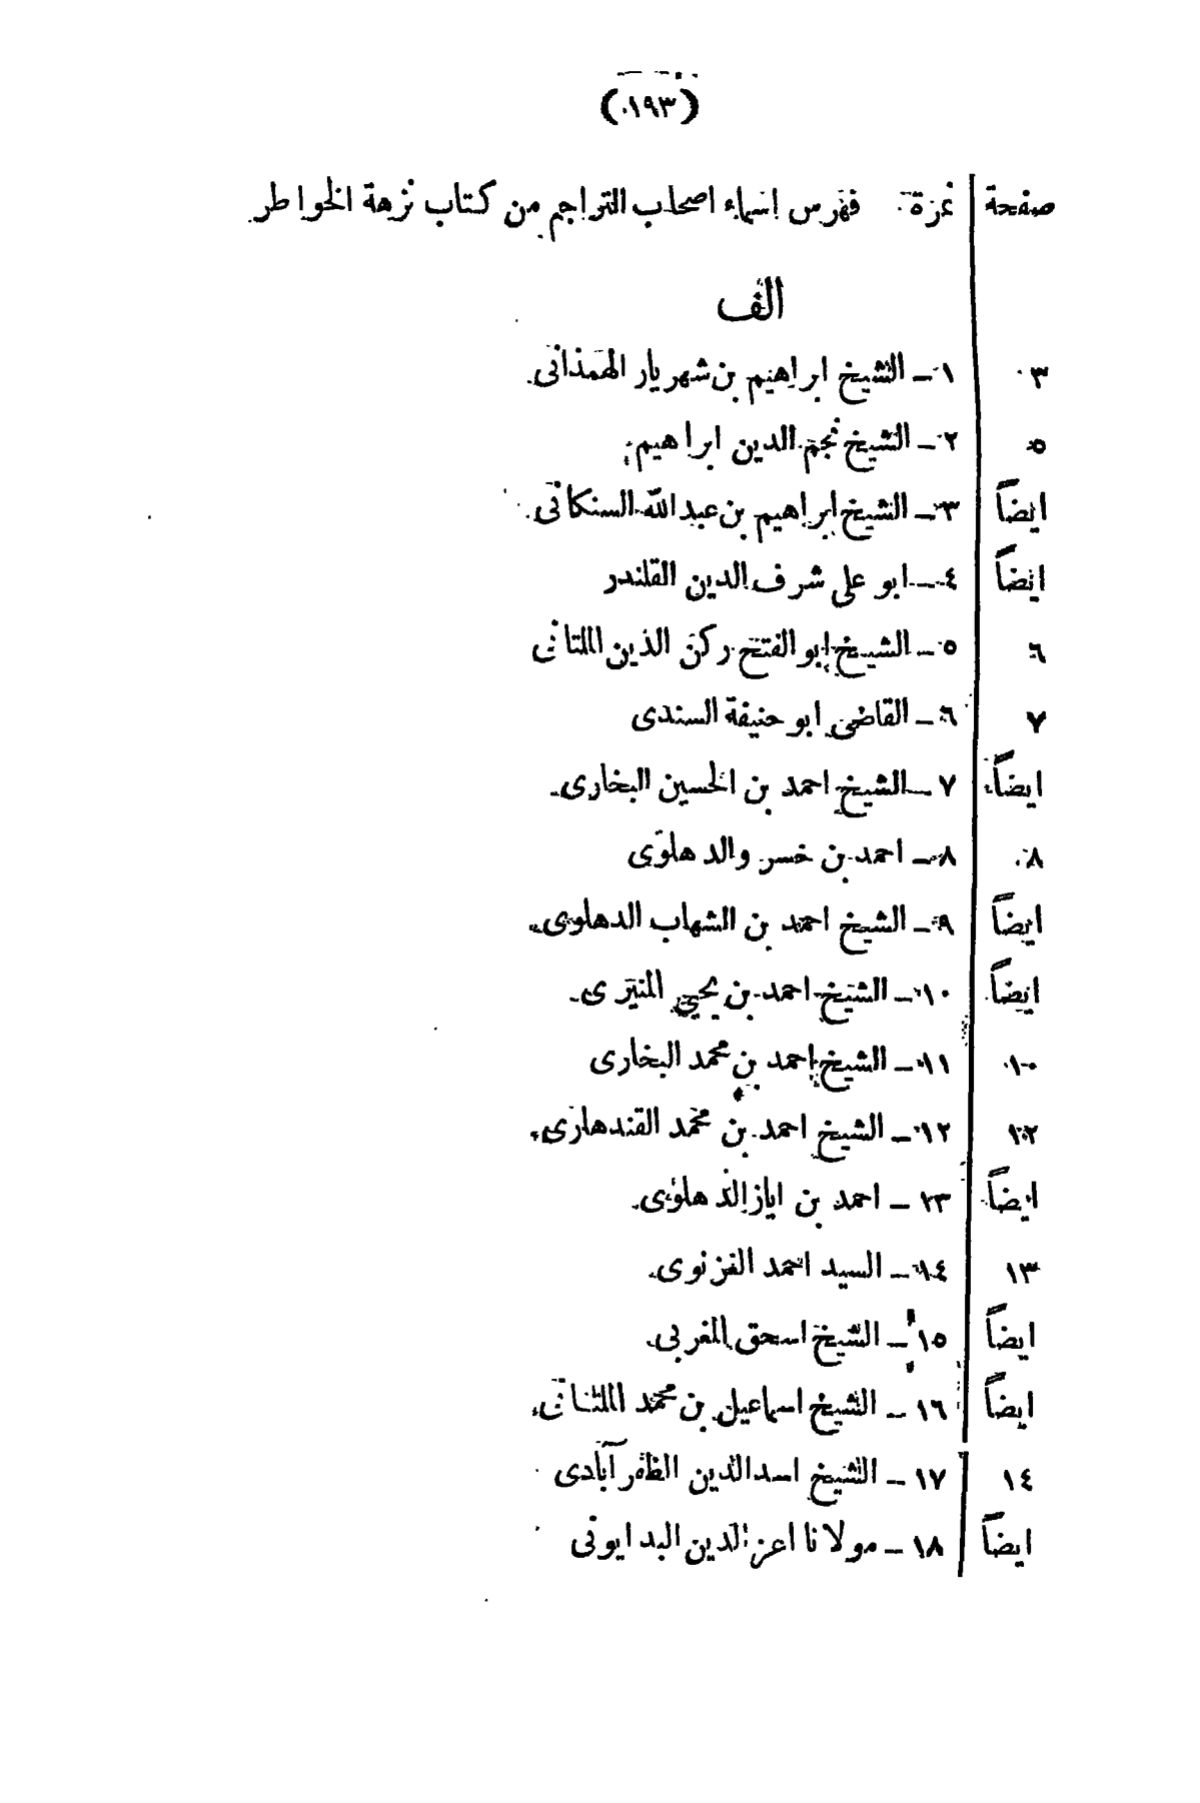 (١٩٣)
صفحة نمرة فهرس اسماء اصحاب التراجم من كتاب نزهة الخواطر
الف
٣ ١ – الشيخ ابراهيم بن شهريار الهمذانى
٥ ٢ – الشيخ نجم الدين ابراهيم
ايضاً ٣ – الشيخ ابراهيم بن عبدالله السنكانى
ايضاً ٤ – ابو على شرف الدين القلندر
٦ ٥ – الشيخ ابو الفتح ركن الدين الملتانى
٧ ٦ – القاضى ابو حنيفة السندى
ايضاً ٧ – الشيخ احمد بن الحسين البخارى
٨ ٨ – احمد بن خسر والدهلوى
ايضاً ٩ – الشيخ احمد بن الشهاب الدهلوى
ايضاً ١٠ – الشيخ احمد بن يحيى المنيرى
١٠ ١١ – الشيخ احمد بن محمد البخارى
١٢ ١٢ – الشيخ احمد بن محمد القندهارى
ايضاً ١٣ – احمد بن اياز الدهلوى
١٣ ١٤ – السيد احمد الغزنوى
ايضاً ١٥ – الشيخ اسحق المغربى
ايضاً ١٦ – الشيخ اسماعيل بن محمد الملتانى
١٤ ١٧ – الشيخ اسدالدين الظفر آبادى
ايضاً ١٨ – مولانا اعز الدين البدايونى